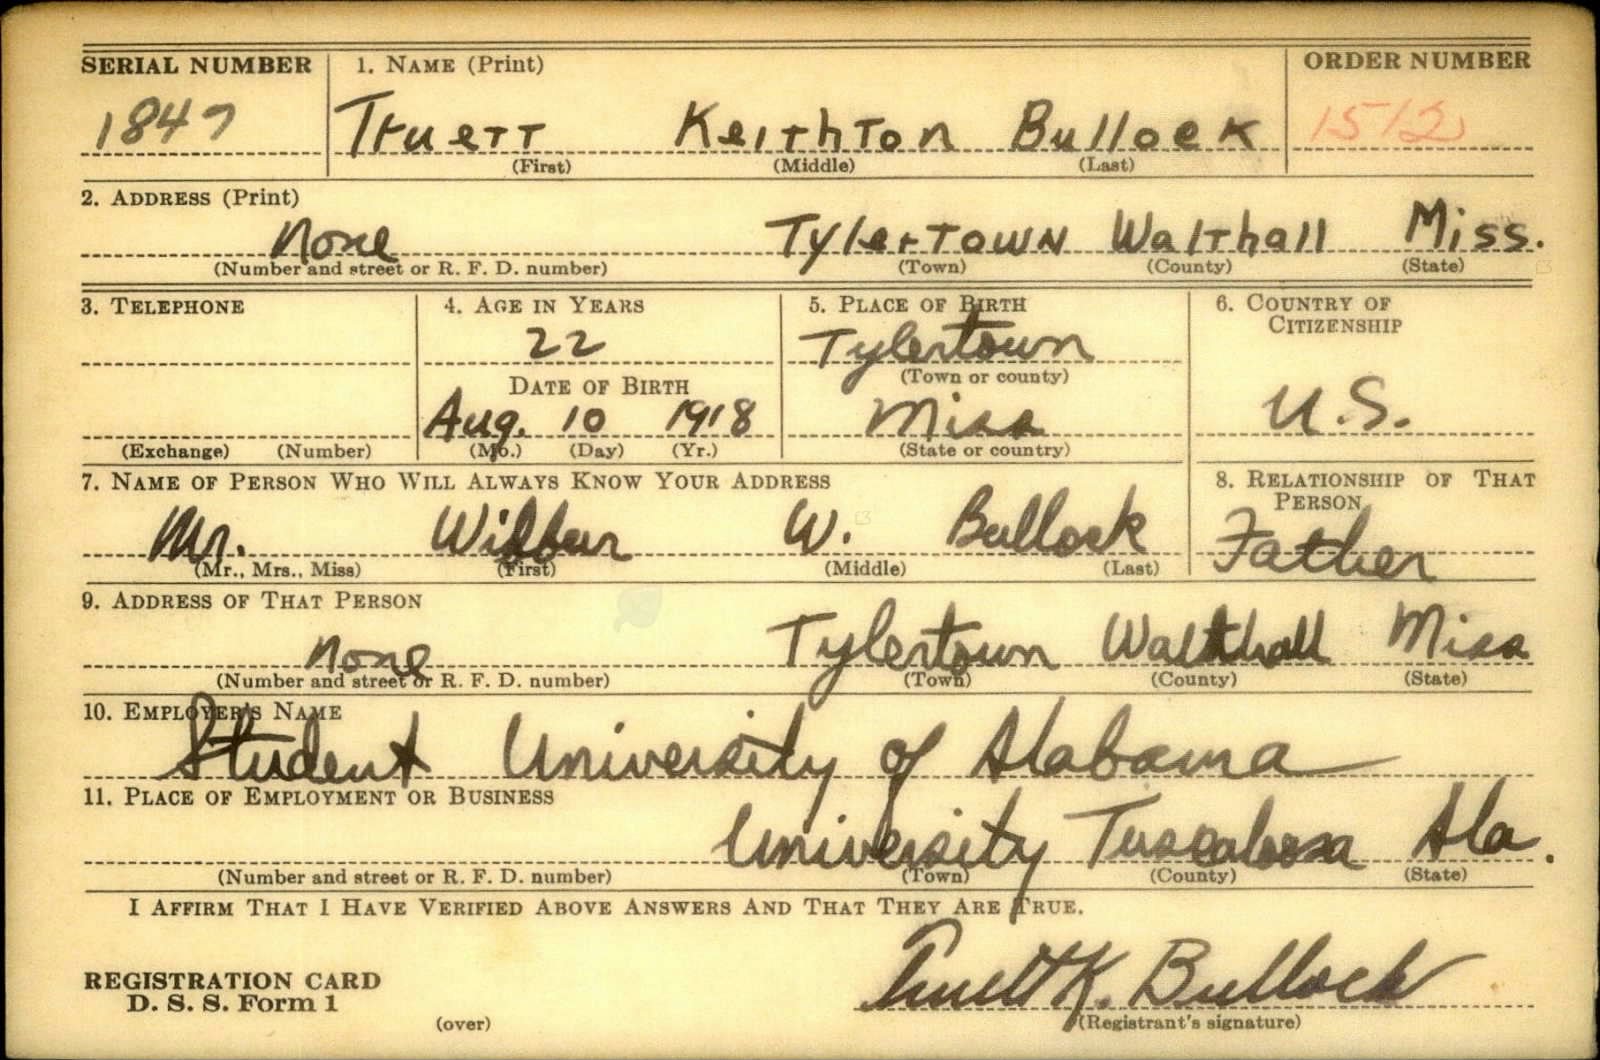 SERIAL NUMBER 1. NAME (Print) ORDER NUMBER
1847 Truett Keithton Bullock 1512
(First) (Middle) (Last)
2. ADDRESS (Print)
None Tylertown Walthall Miss.
(Number and street or R. F. D. number) (Town) (County) (State)
3. TELEPHONE 4. AGE IN YEARS 5. PLACE OF BIRTH 6. COUNTRY OF
CITIZENSHIP
22 Tylertown
(Town or county)
DATE OF BIRTH
Aug. 10 1918 Miss U.S.
(Exchange) (Number) (Mo.) (Day) (Yr.) (State or country)
7. NAME OF PERSON WHO WILL ALWAYS KNOW YOUR ADDRESS 8. RELATIONSHIP OF THAT
PERSON
Mr. Wilbur W. Bullock Father
(Mr., Mrs., Miss) (First) (Middle) (Last)
9. ADDRESS OF THAT PERSON
None Tylertown Walthall Miss
(Number and street or R. F. D. number) (Town) (County) (State)
10. EMPLOYER'S NAME
Student University of Alabama
11. PLACE OF EMPLOYMENT OR BUSINESS
University Tuscaloosa Ala.
(Number and street or R. F. D. number) (Town) (County) (State)
I AFFIRM THAT I HAVE VERIFIED ABOVE ANSWERS AND THAT THEY ARE TRUE.
REGISTRATION CARD
D. S. S. Form 1
Truett K. Bullock
(over) (Registrant's signature)